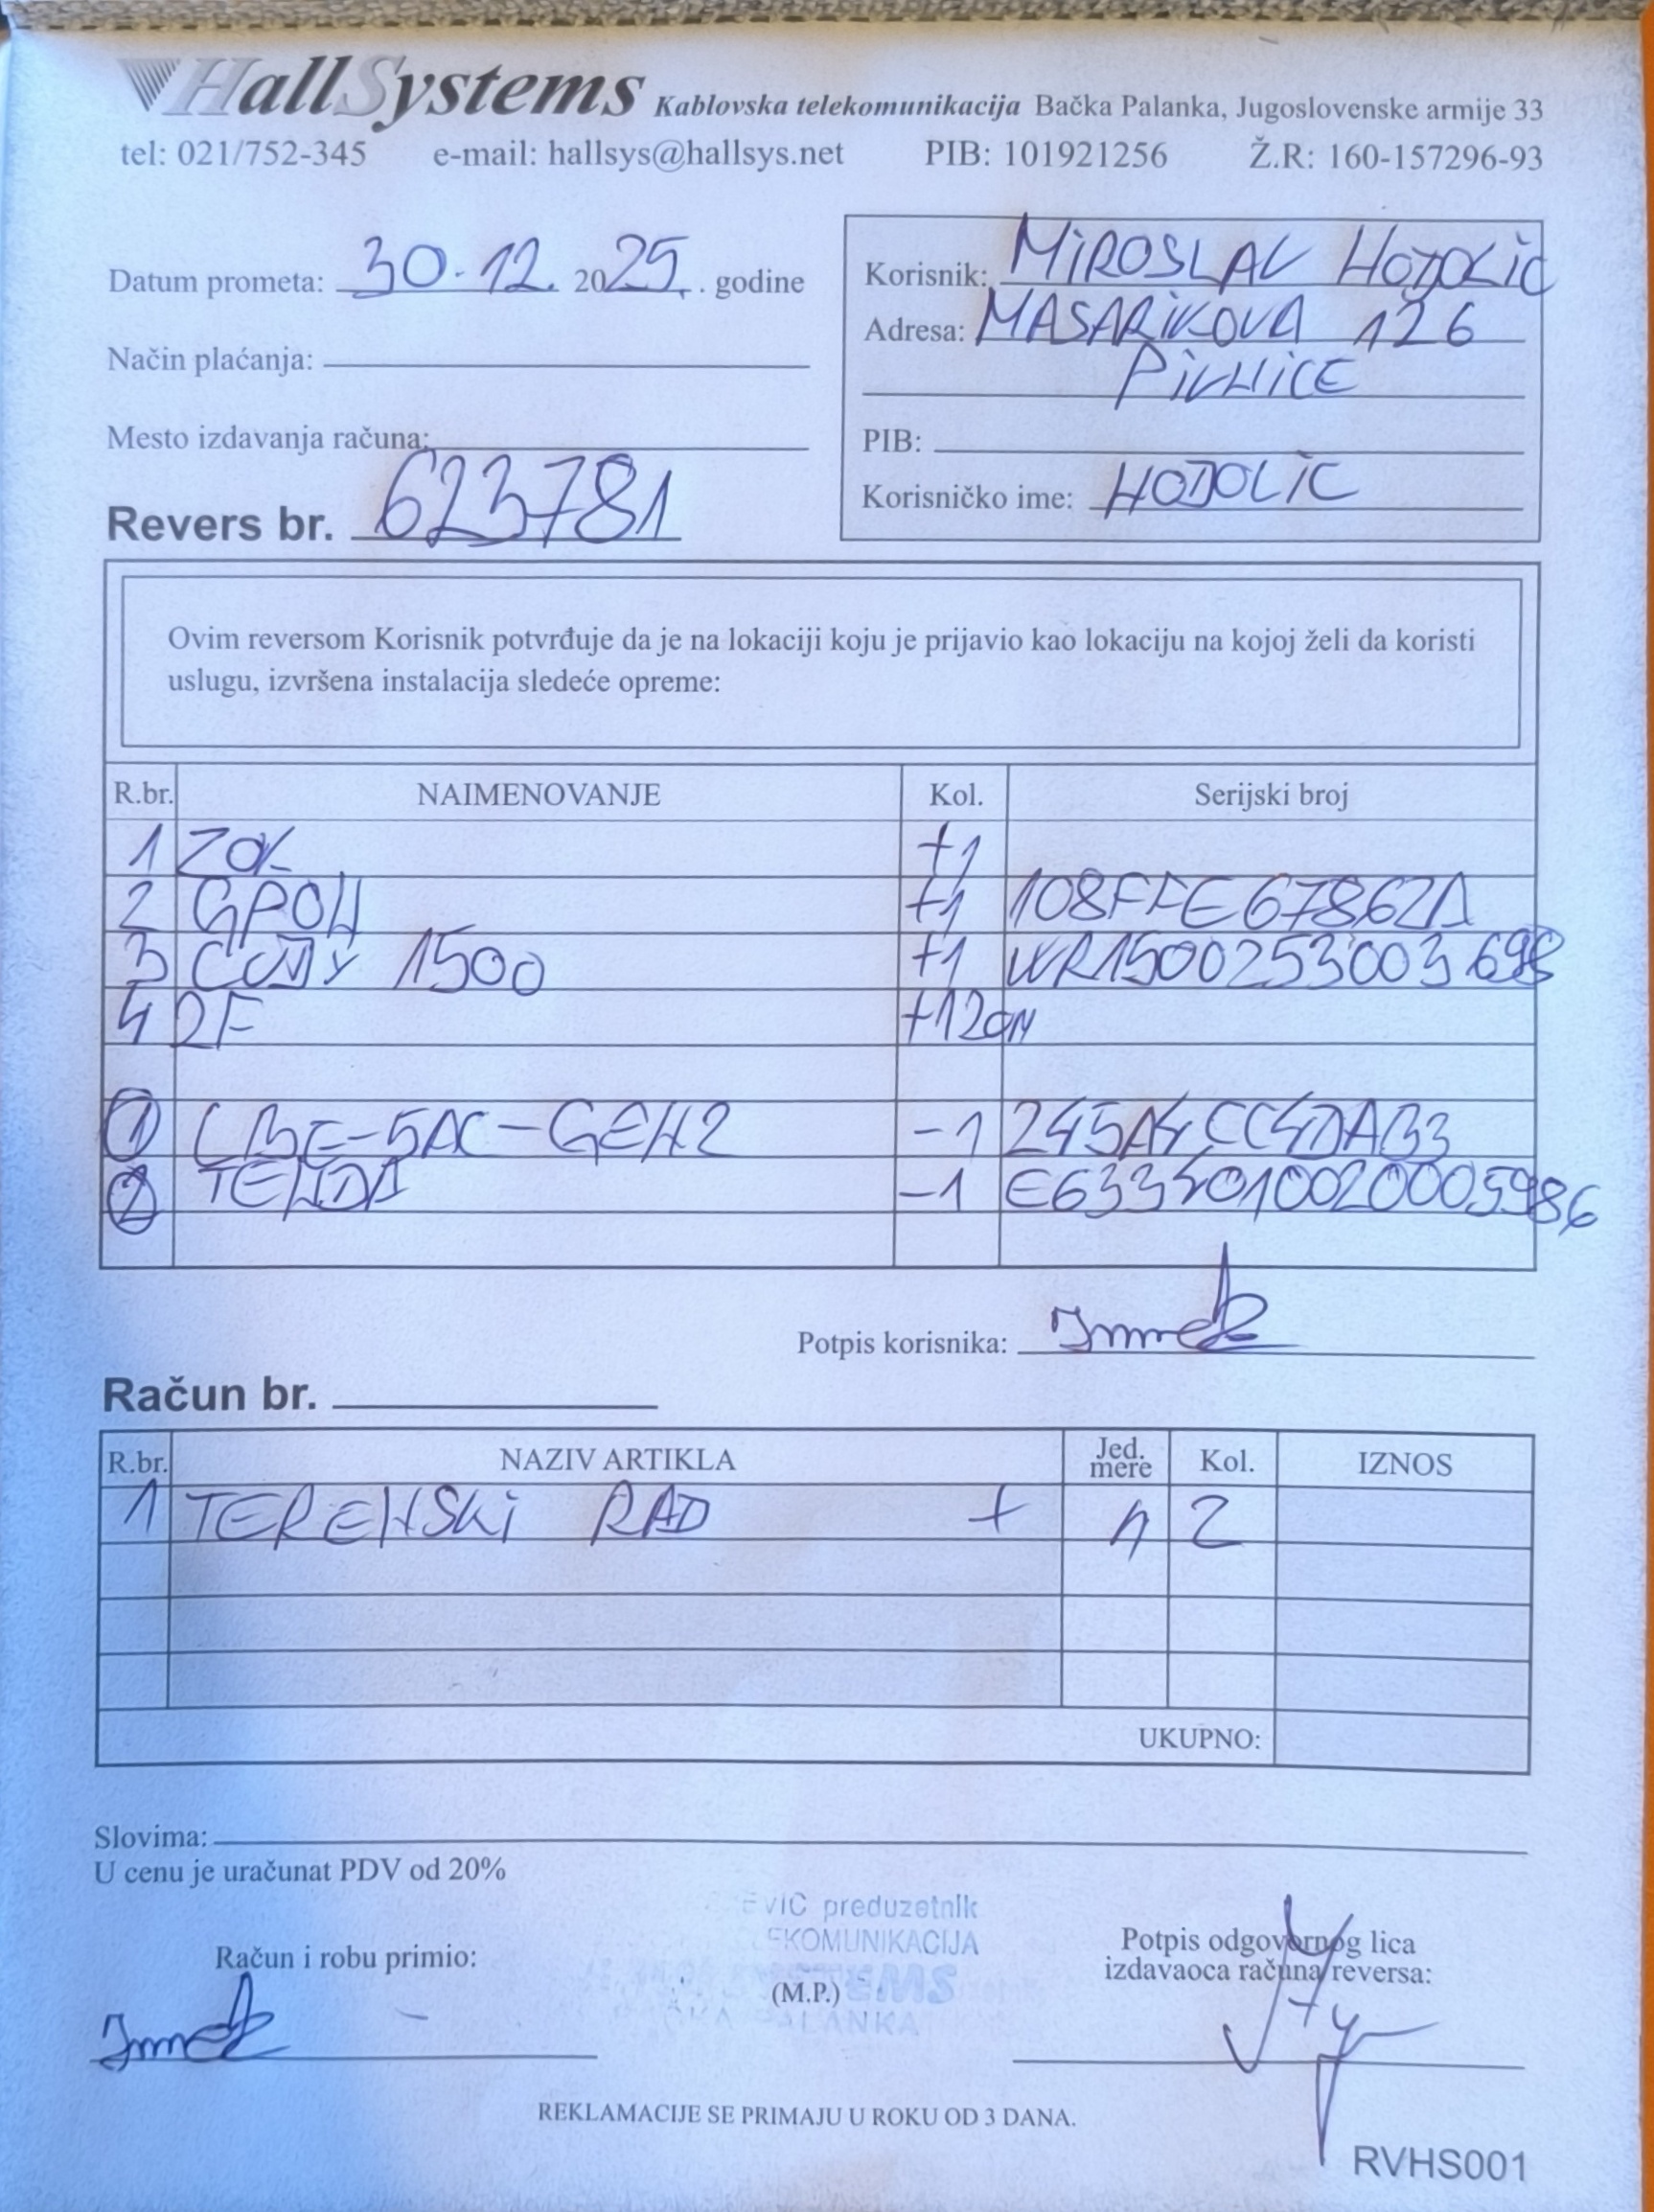 HallSystems Kablovska telekomunikacija Bačka Palanka, Jugoslovenske armije 33
tel: 021/752-345 e-mail: hallsys@hallsys.net PIB: 101921256 Ž.R: 160-157296-93
Datum prometa: 30.12. 2025. godine
Način plaćanja:
Mesto izdavanja računa:
Revers br. 623781
Korisnik: MIROSLAV HODOLIC
Adresa: MASARIKOVA 126
PIVNICE
PIB:
Korisničko ime: HODOLIC
Ovim reversom Korisnik potvrđuje da je na lokaciji koju je prijavio kao lokaciju na kojoj želi da koristi
uslugu, izvršena instalacija sledeće opreme:
R.br. NAIMENOVANJE Kol. Serijski broj
1 ZOK +1
2 GPON +1 108FFE67862A
3 CUDY 1500 +1 WR1500253003698
4 2F +120M
1 LBE-5AC-GEN2 -1 245A4CC4DAB3
2 TENDA -1 E6334010020005986
Potpis korisnika:
Račun br.
R.br. NAZIV ARTIKLA Jed. mere Kol. IZNOS
1 TERENSKI RAD + 1 2
UKUPNO:
Slovima:
U cenu je uračunat PDV od 20%
EVIĆ preduzetnik
EKOMUNIKACIJA
TEMS
PALANKA
Račun i robu primio:
(M.P.)
Potpis odgovornog lica
izdavaoca računa/reversa:
REKLAMACIJE SE PRIMAJU U ROKU OD 3 DANA.
RVHS001